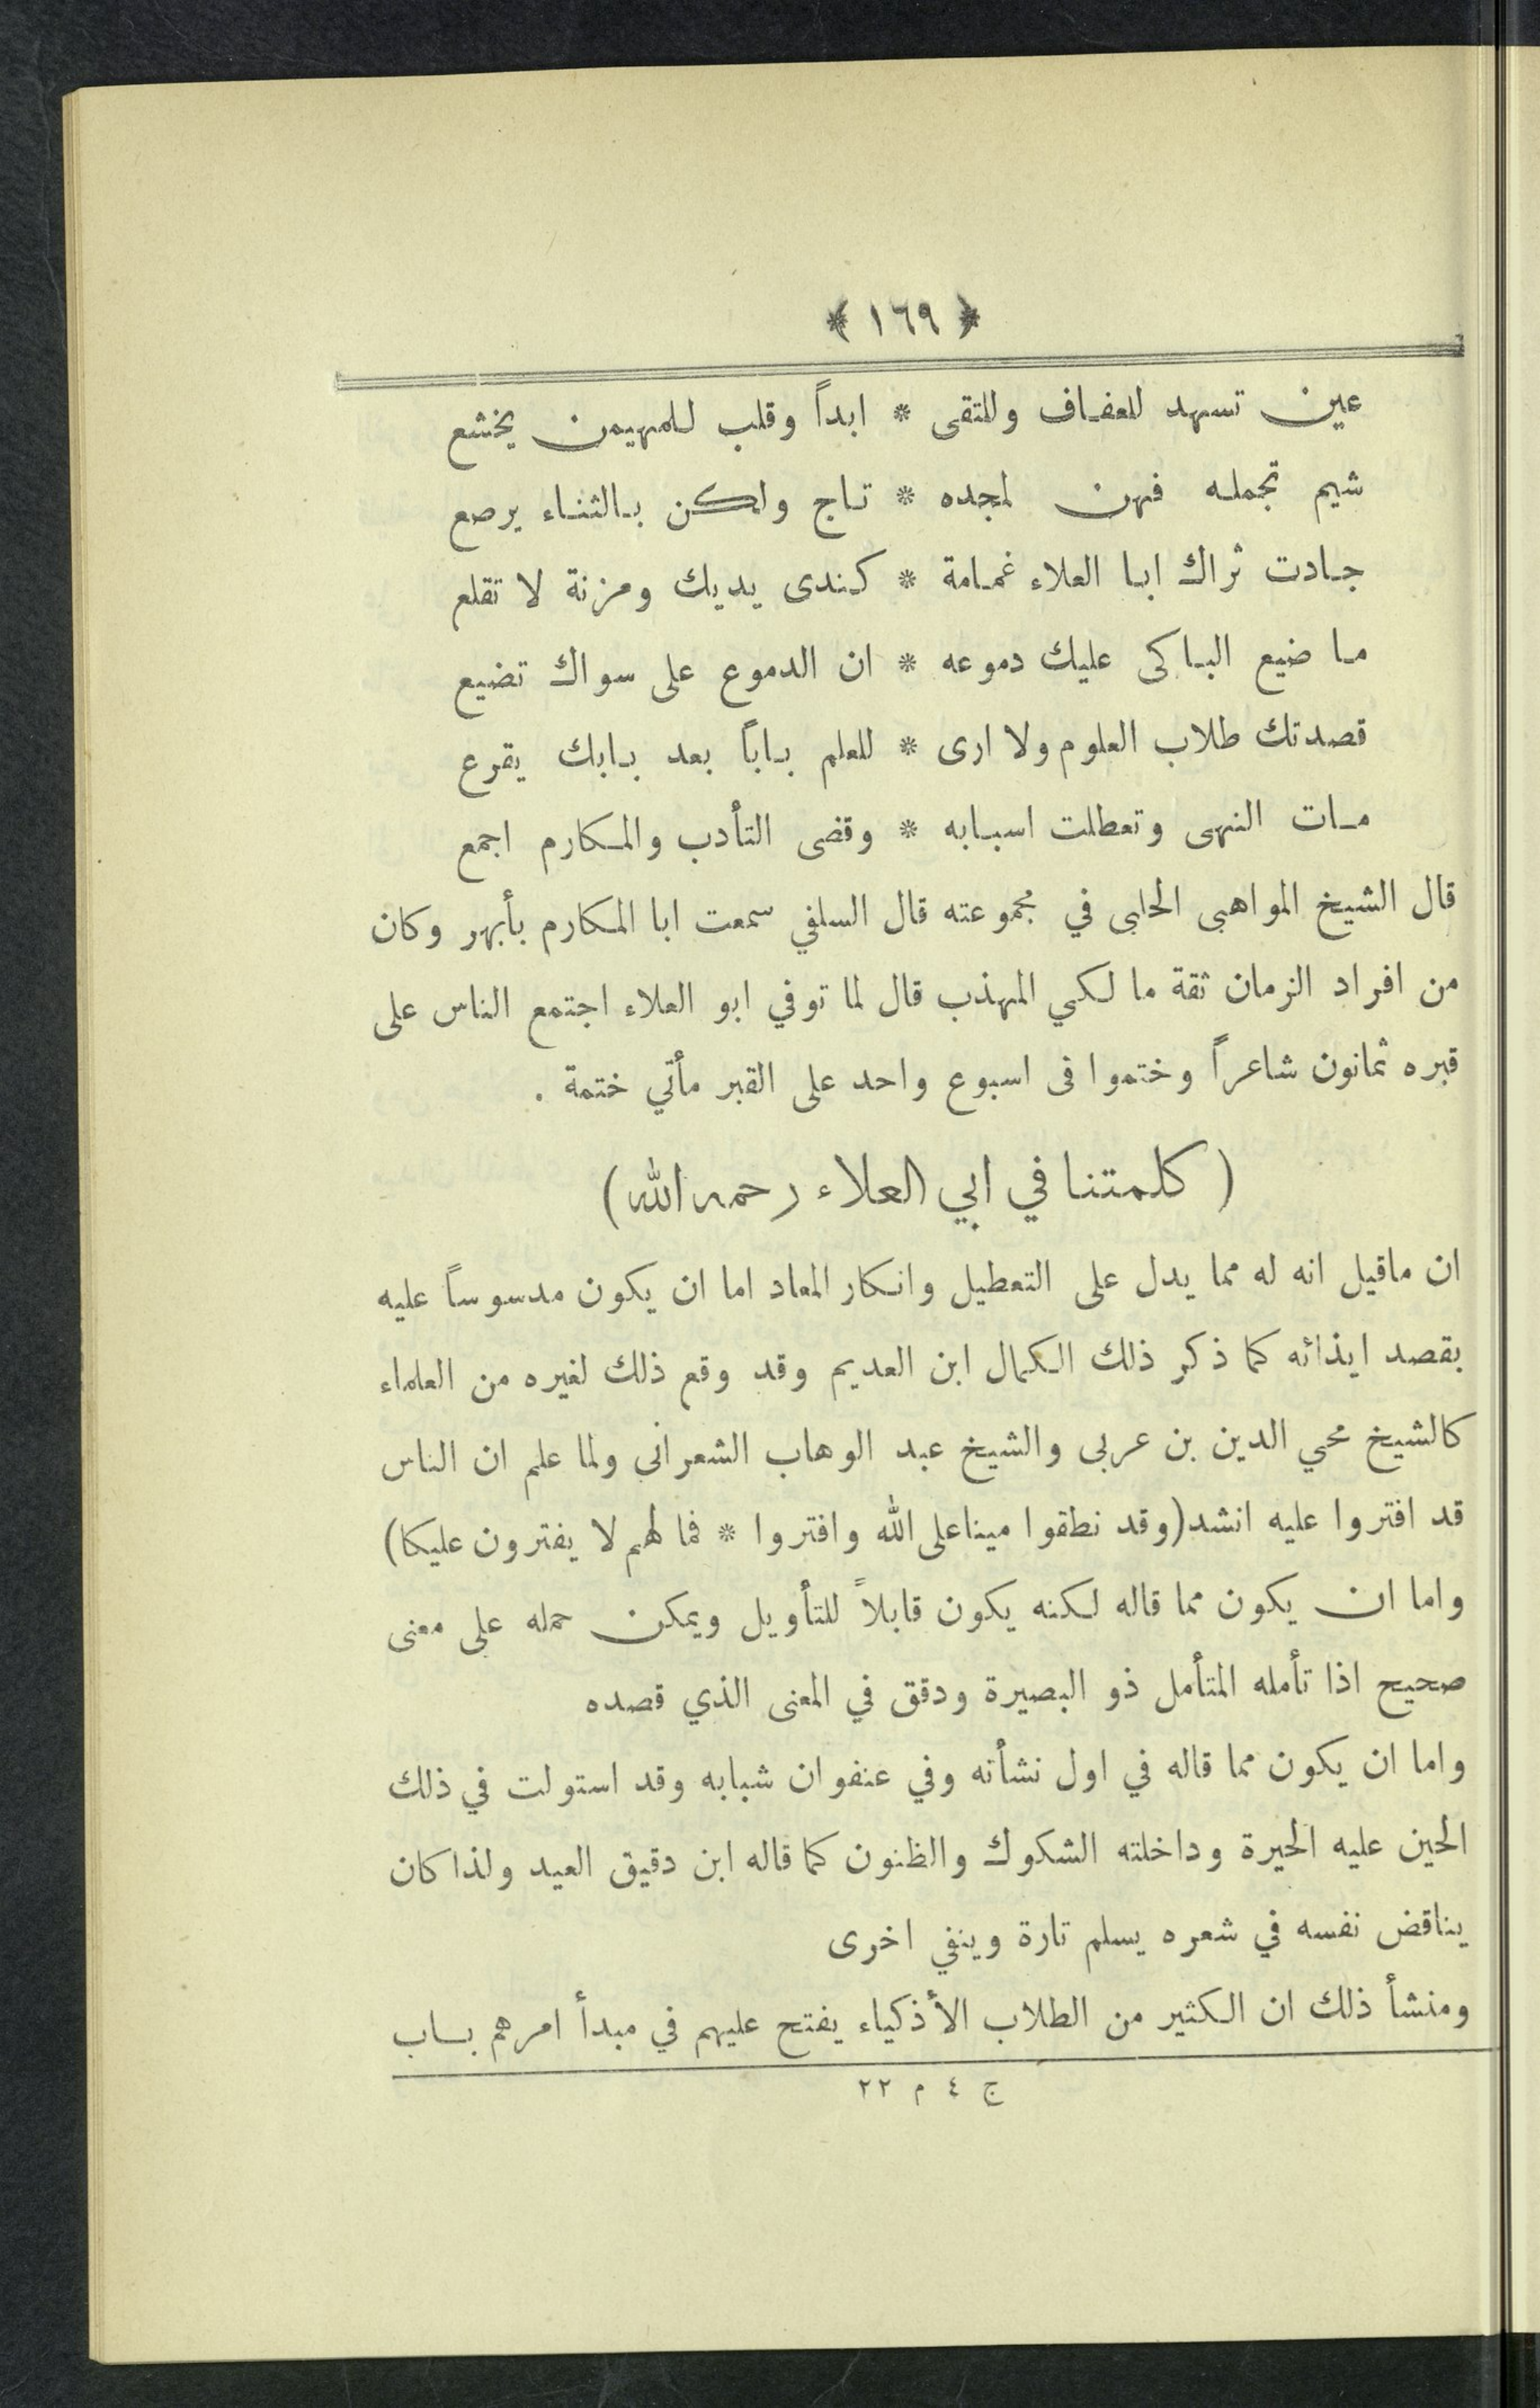 ﴿ ١٦٩ ﴾
عين تسهد للعفاف وللتقى * ابداً وقلب للمهيمن يخشع
شيم تجمله فهن لمجده * تاج ولكن بالثناء يرصع
جادت ثراك ابا العلاء غمامة * كندى يديك ومزنة لا تقلع
ما ضيع الباكى عليك دموعه * ان الدموع على سواك تضيع
قصدتك طلاب العلوم ولا ارى * للعلم باباً بعد بابك يقرع
مات النهى وتعطلت اسبابه * وقضى التأدب والمكارم اجمع
قال الشيخ المواهبى الحلبى في مجموعته قال السلفي سمعت ابا المكارم بأبهر وكان
من افراد الزمان ثقة ما لكي المهذب قال لما توفي ابو العلاء اجتمع الناس على
قبره ثمانون شاعراً وختموا فى اسبوع واحد على القبر مأتي ختمة .
( كلمتنا في ابي العلاء رحمه الله )
ان ماقيل انه له مما يدل على التعطيل وانكار المعاد اما ان يكون مدسوساً عليه
بقصد ايذائه كما ذكر ذلك الكمال ابن العديم وقد وقع ذلك لغيره من العلماء
كالشيخ محي الدين بن عربى والشيخ عبد الوهاب الشعرانى ولما علم ان الناس
قد افتروا عليه انشد (وقد نطقوا ميناعلى الله وافتروا * فما لهم لا يفترون عليكا)
واما ان يكون مما قاله لكنه يكون قابلاً للتأويل ويمكن حمله على معنى
صحيح اذا تأمله المتأمل ذو البصيرة ودقق في المعنى الذي قصده
واما ان يكون مما قاله في اول نشأته وفي عنفوان شبابه وقد استولت في ذلك
الحين عليه الحيرة وداخلته الشكوك والظنون كما قاله ابن دقيق العيد ولذا كان
يناقض نفسه في شعره يسلم تارة وينفي اخرى
ومنشأ ذلك ان الكثير من الطلاب الأذكياء يفتح عليهم في مبدأ امرهم باب
ج ٤ م ٢٢